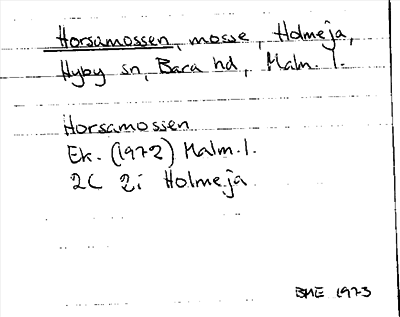 Horsamossen, mosse, Holmeja,
Hyby sn, Bara hd, Malm. l.
Horsamossen
Ek. (1972) Malm. l.
2C 2i Holmeja
BHE 1973